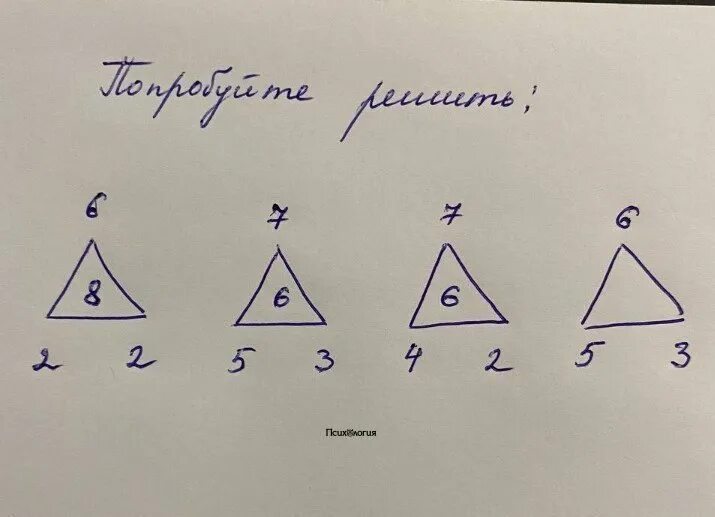 Попробуйте решить:
6 7 7 6
8 6 6
2 2 5 3 4 2 5 3
Психология